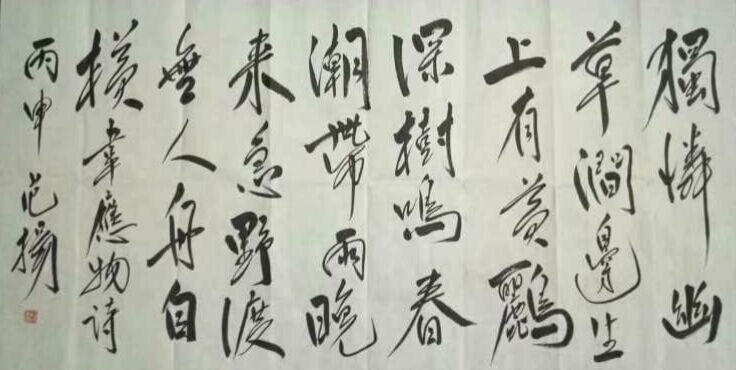 獨憐幽
草澗邊生
上有黃鸝
深樹鳴春
潮帶雨晚
来急野渡
無人舟自
横韋應物詩
丙申范揚